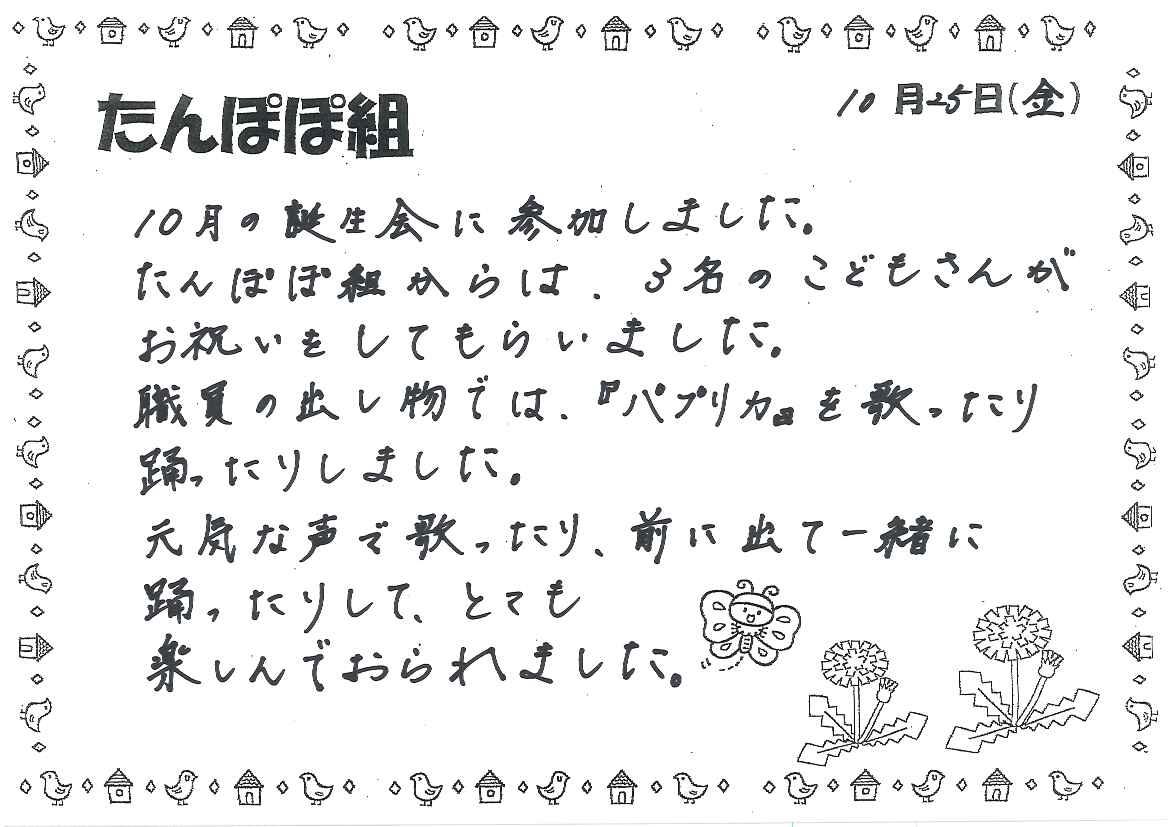 たんぽぽ組
10月25日(金)
10月の誕生会に参加しました。
たんぽぽ組からは、3名のこどもさんが
お祝いをしてもらいました。
職員の出し物では、『パプリカ』を歌ったり
踊ったりしました。
元気な声で歌ったり、前に出て一緒に
踊ったりして、とても
楽しんでおられました。